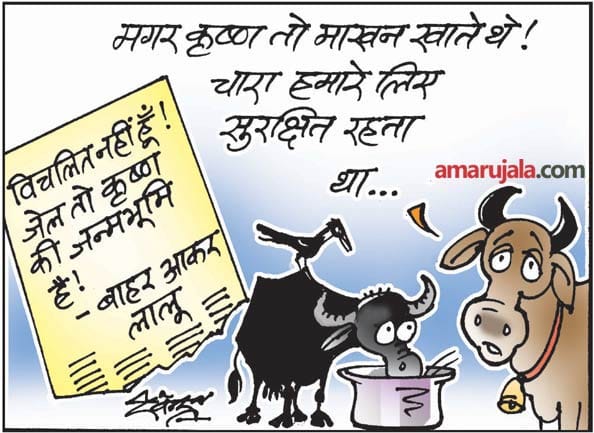 मगर कृष्ण तो माखन खाते थे!
चारा हमारे लिए
सुरक्षित रहता
था...
amarujala.com
विचलित नहीं हूँ!
जेल तो कृष्ण
की जन्मभूमि
है!
- बाहर आकर
लालू